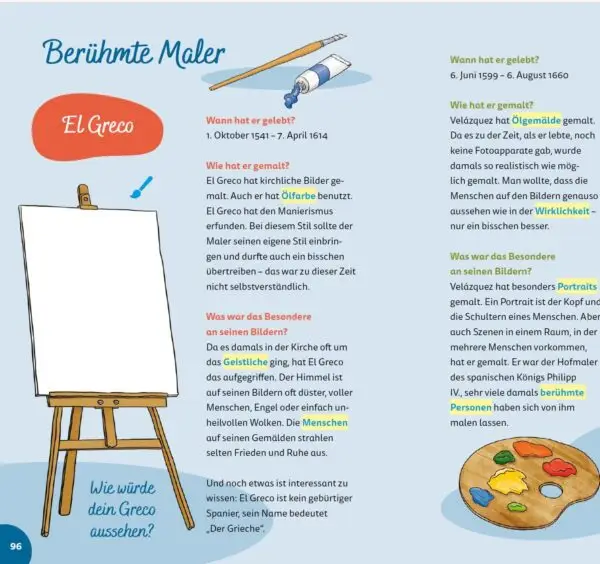 Berühmte Maler
El Greco
Wie würde
dein Greco
aussehen?
96
Wann hat er gelebt?
1. Oktober 1541 – 7. April 1614
Wie hat er gemalt?
El Greco hat kirchliche Bilder ge-
malt. Auch er hat Ölfarbe benutzt.
El Greco hat den Manierismus
erfunden. Bei diesem Stil sollte der
Maler seinen eigene Stil einbrin-
gen und durfte auch ein bisschen
übertreiben – das war zu dieser Zeit
nicht selbstverständlich.
Was war das Besondere
an seinen Bildern?
Da es damals in der Kirche oft um
das Geistliche ging, hat El Greco
das aufgegriffen. Der Himmel ist
auf seinen Bildern oft düster, voller
Menschen, Engel oder einfach un-
heilvollen Wolken. Die Menschen
auf seinen Gemälden strahlen
selten Frieden und Ruhe aus.
Und noch etwas ist interessant zu
wissen: El Greco ist kein gebürtiger
Spanier, sein Name bedeutet
„Der Grieche“.
Wann hat er gelebt?
6. Juni 1599 – 6. August 1660
Wie hat er gemalt?
Velázquez hat Ölgemälde gemalt.
Da es zu der Zeit, als er lebte, noch
keine Fotoapparate gab, wurde
damals so realistisch wie mög-
lich gemalt. Man wollte, dass die
Menschen auf den Bildern genauso
aussehen wie in der Wirklichkeit –
nur ein bisschen besser.
Was war das Besondere
an seinen Bildern?
Velázquez hat besonders Portraits
gemalt. Ein Portrait ist der Kopf und
die Schultern eines Menschen. Aber
auch Szenen in einem Raum, in der
mehrere Menschen vorkommen,
hat er gemalt. Er war der Hofmaler
des spanischen Königs Philipp
IV., sehr viele damals berühmte
Personen haben sich von ihm
malen lassen.